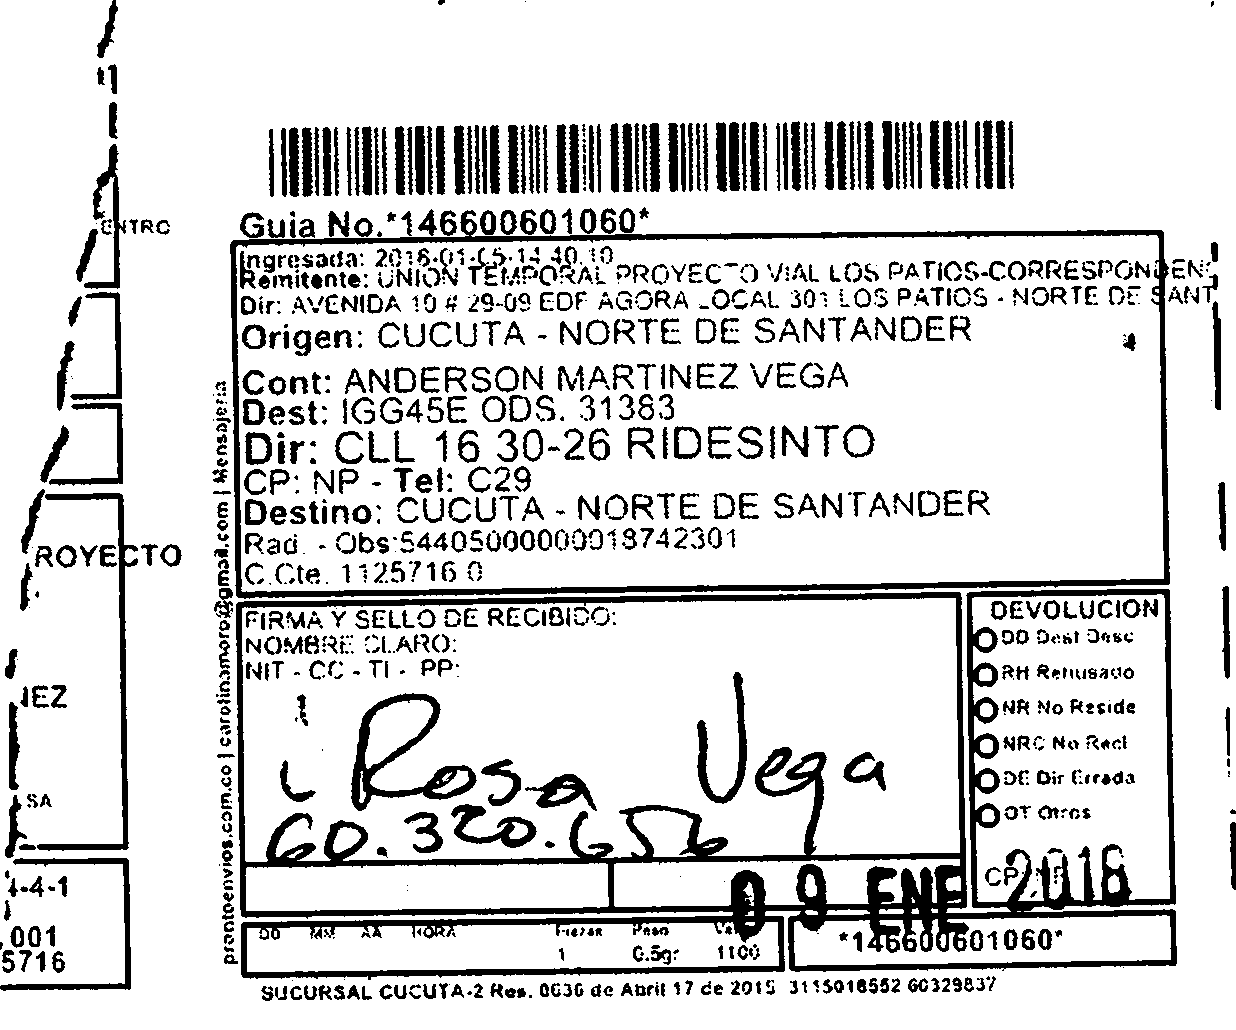 ENTRO
Guia No.*146600601060*
Ingresada: 2018-01-05-14.40.10
Remitente: UNION TEMPORAL PROYECTO VIAL LOS PATIOS-CORRESPONDENS
Dir: AVENIDA 10 # 29-09 EDF AGORA LOCAL 301 LOS PATIOS - NORTE DE SANT
Origen: CUCUTA - NORTE DE SANTANDER
Cont: ANDERSON MARTINEZ VEGA
Dest: IGG45E ODS. 31383
Dir: CLL 16 30-26 RIDESINTO
CP: NP - Tel: C29
Destino: CUCUTA - NORTE DE SANTANDER
Rad. - Obs:544050000000018742301
C.Cte. 1125716 0
ROYECTO
IEZ
SA
4-4-1
001
5716
prontoenvios.com.co | carolinamoro@gmail.com | Mensajeria
FIRMA Y SELLO DE RECIBIDO:
NOMBRE CLARO:
NIT - CC - TI - PP:
Rosa Vega
60.320.656
DEVOLUCION
DD Dest Desc
RH Rehusado
NR No Reside
NRC No Recl
DE Dir Errada
OT Otros
CP: NP
09 ENE 2018
DD MM AA HORA
Piezas Peso
1 0.5gr 1100
*146600601060*
SUCURSAL CUCUTA-2 Res. 0636 de Abril 17 de 2015 3115018552 60329837